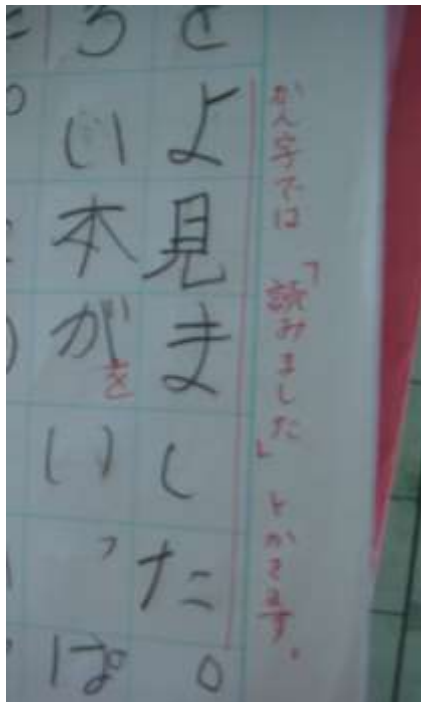 かん字では「読みました」とかきます。
とよ見ました。
ろい本がいっぱ
を